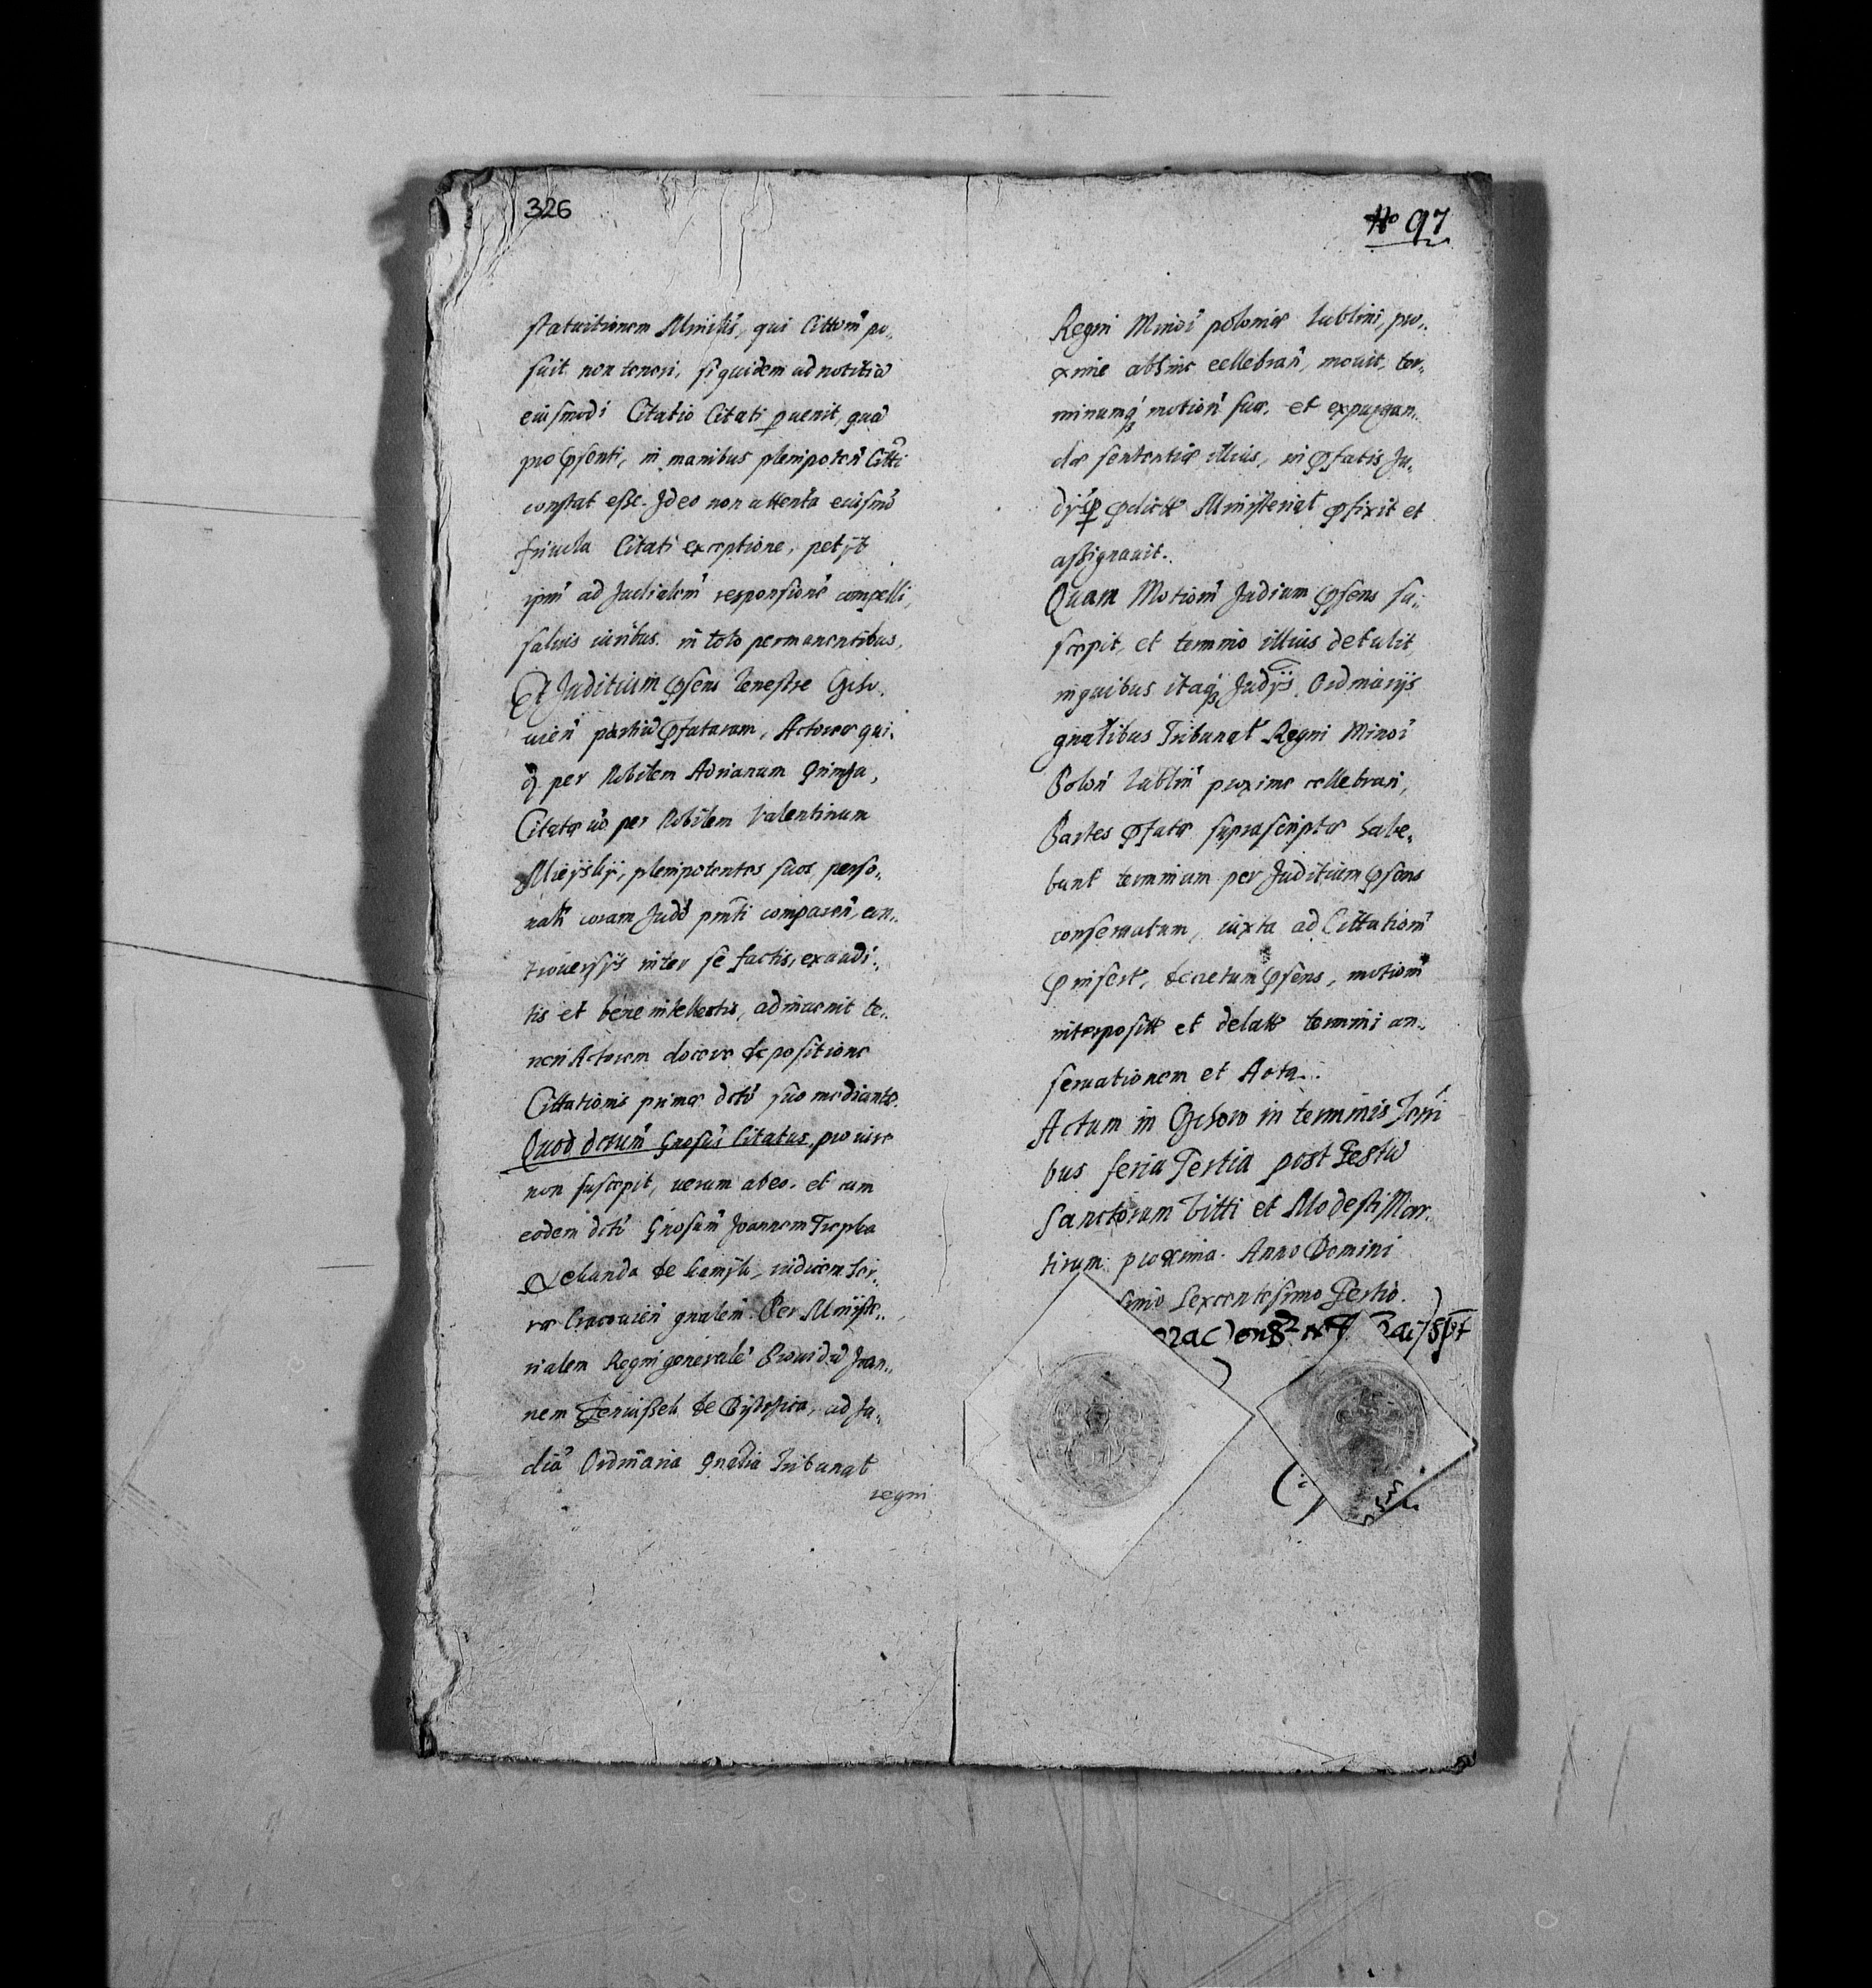 326
No 97
statuitionem Minilis, qui Cittom̃ po„
suit non teneri, siquidem ad notitiã
euismodi Citatio Citati puenit, quã
pro psenti, in manibus plenipoten̄ Citti
constat esse. Ideo non attenta euismõ
friuola Citati exceptione, petijt
ipm̃ ad Judialem̃ responsionẽ compelli,
saluis iuribus in toto permanentibus,
Et Juditium psens terrestre Gcho„
uien̄ partiũ pfatarum, Actorea qui„
q per Nobilem Adrianum
Citatæ uõ per Nobilem Valentinum
plenipotentes suos, perso„
nalr̃ coram Judõ pnti comparen̄, con„
trouersijs inter se factis, exaudi„
tis et bene intellectis, adinuenit te„
neri Actorem docere de positione
Cittationis primæ dctõ suo mediante.
Quod dctum̃ Gnosus Citatus, pro uire
non suscepit, uerum ab eo. et cum
eodem dctõ Gnosum̃ Joannem Trepka
de iudicem Ter„
ræ Cracouien̄ gnalem. Per Ministe„
rialem Regni generalẽ Prouidũ Joan„
nem de ad Ju„
dia Ordinaria Gnalia Tribunal
regni
Regni Minoř poloniæ Lublini, pro„
xime abhinc cellebran̄, mouit, ter„
minumq motion̄ suæ, et expurgan„
dæ sententiæ illius, in pfatis Ju„
dijs p pdictũ Ministerial pfixit et
assignauit.
Quam Motiom̃ Judium psens su„
scepit, et termino illius detulit,
in quibus itaq Judijs Ordinarijs
gnalibus Tribunal Regni Minoř
Polon̄ Lublin̄ proxime cellebran̄,
Partes pfatæ suprascriptæ habe„
bunt terminum per Juditium psens
conseruatum, iuxta ad Cittatiom̃
p insert, decretum psens, motiom̃
interposit et delat termini con„
seruationem et Acta.
Actum in in terminis Terri
bus feria Tertia post Festũ
Sanctorum Vitti et Modesti Mar„
tirum proxima. Anno Domini
simo Sexcentesimo Tertio.